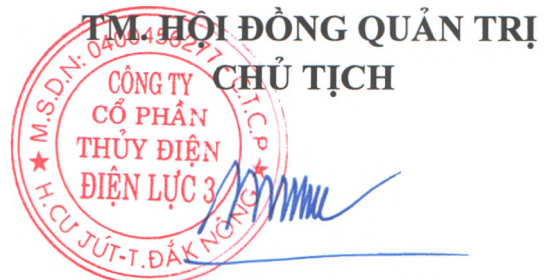 TM. HỘI ĐỒNG QUẢN TRỊ
CHỦ TỊCH
M.S.D.N: 0400456277 C.T.C.P
CÔNG TY
CỔ PHẦN
THỦY ĐIỆN
ĐIỆN LỰC 3
H.CƯ JÚT-T.ĐẮK NÔNG